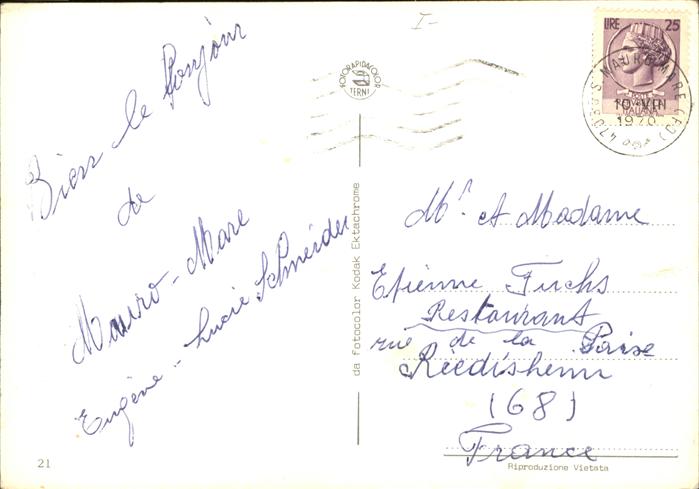 I-
Bien le Bonjour
de
Mauro-Mare
Eugène - Lucie Schneider
21
FOTORAPIDACOLOR
TERNI
da fotocolor Kodak Ektachrome
LIRE 25
POSTE
ITALIANA
S MAURO MARE (FO)
47030
10 VIII
1970
Mr et Madame
Etienne Fuchs
Restaurant
rue de la Paix
Riedisheim
(68)
France
Riproduzione Vietata